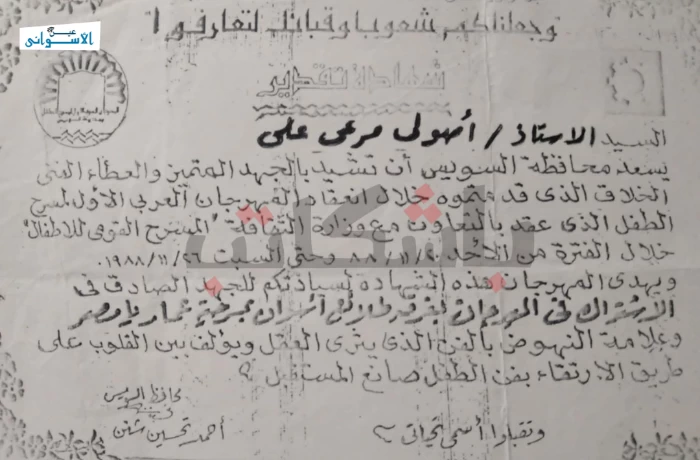 عين الاسوانى
وجعلناكم شعوبا وقبائل لتعارفوا
شهادة تقدير
السيد الاستاذ / أصولى مرعى على
يسعد محافظة السويس أن تشيد بالجهد المتميز والعطاء الفنى
الخلاق الذى قدمتموه خلال انعقاد المهرجان العربى الأول لمسرح
الطفل الذى عقد بالتعاون مع وزارة الثقافة "المسرح القومى للاطفال"
خلال الفترة من الأحد ٨٨/١١/٢٠ وحتى السبت ١٩٨٨/١١/٢٦
ويهدى المهرجان هذه الشهادة لسيادتكم للجهد الصادق فى
الاشتراك فى المهرجان بفرقة طلائع أسوان بمسرحية عمار يا مصر
وعلامة النهوض بالفن الذى يثرى العقل ويؤلف بين القلوب على
طريق الارتقاء بفن الطفل صانع المستقبل
وتقبلوا أسمى تحياتى
محافظ السويس
أحمد تحسين شنن
باشكاتب